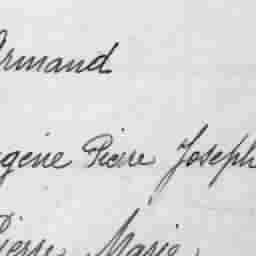 Armand
gène Pierre Joseph
Pierre Marie